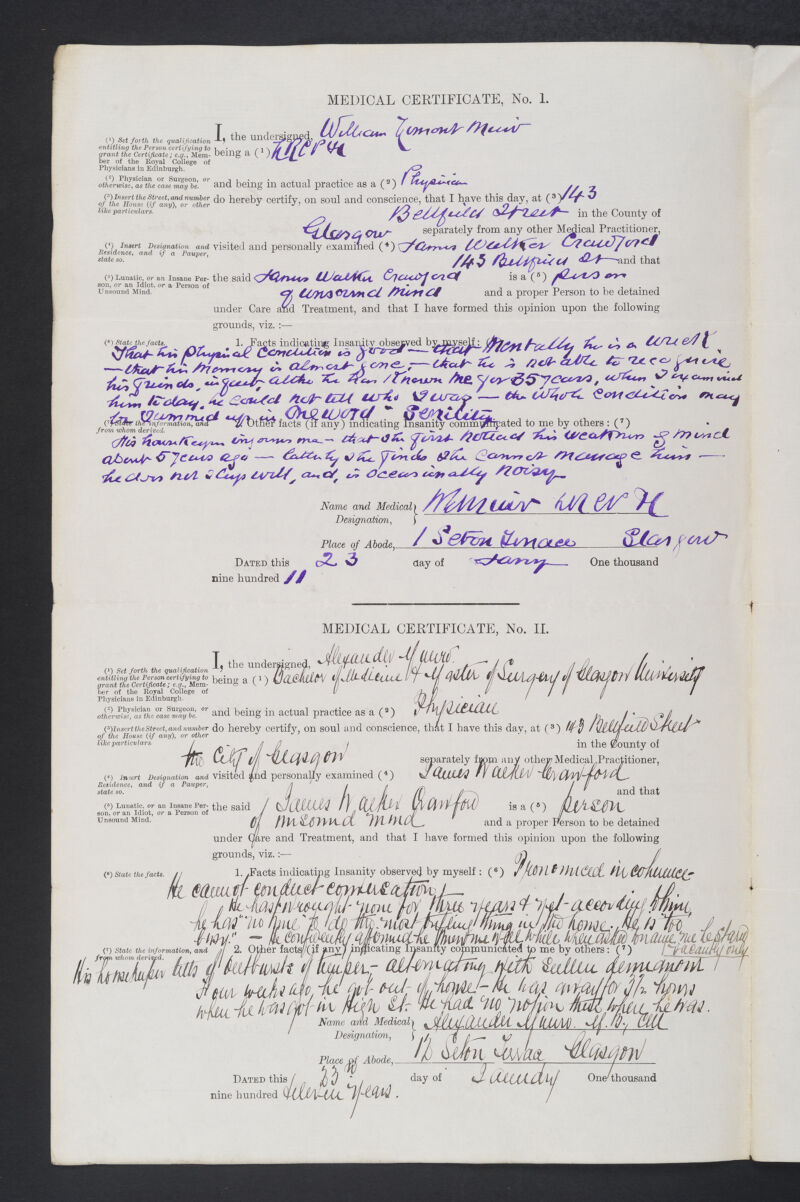 MEDICAL CERTIFICATE, No. I.
(¹) Set forth the qualification entitling the Person certifying to grant the Certificate; e.g., Member of the Royal College of Physicians in Edinburgh.
I, the undersigned, William Muir
being a (¹) LRCP
(²) Physician or Surgeon, or otherwise, as the case may be.
and being in actual practice as a (²) Physician
(³) Insert the Street, and number of the House (if any), or other like particulars.
do hereby certify, on soul and conscience, that I have this day, at (³) 143
Bellfield Street in the County of
Glasgow separately from any other Medical Practitioner,
(⁴) Insert Designation and Residence, and if a Pauper, state so.
visited and personally examined (⁴) James Walker Crawford
143 Bellfield St and that
(⁵) Lunatic, or an Insane Person, or an Idiot, or a Person of Unsound Mind.
the said James Walker Crawford is a (⁵) person
of unsound mind and a proper Person to be detained
under Care and Treatment, and that I have formed this opinion upon the following
grounds, viz. :—
(⁶) State the facts.
1. Facts indicating Insanity observed by myself: (⁶)
That his physical condition is good — that Mentally he is a wreck
— that his memory is almost gone, — that he is not able to recognise
his friends, in fact, altho he has known me for 35 years, when I examined
him today, he could not tell who I was — the whole condition may
be summed up in One word - Senility
(⁷) State the information, and from whom derived.
2. Other facts (if any) indicating Insanity communicated to me by others: (⁷)
His housekeeper informs me — that she first noticed his weakness of mind
about 5 years ago — latterly she finds she cannot manage him —
he does not sleep well, and, is occasionally noisy
Name and Medical Designation, Wm Muir LRCP
Place of Abode, 1 Seton Terrace Glasgow
DATED this 23 day of Jany One thousand
nine hundred 11
MEDICAL CERTIFICATE, No. II.
(¹) Set forth the qualification entitling the Person certifying to grant the Certificate; e.g., Member of the Royal College of Physicians in Edinburgh.
I, the undersigned, Alexander Munro
being a (¹) Bachelor of Medicine & Master of Surgery of Glasgow University
(²) Physician or Surgeon, or otherwise, as the case may be.
and being in actual practice as a (²) Physician
(³) Insert the Street, and number of the House (if any), or other like particulars.
do hereby certify, on soul and conscience, that I have this day, at (³) 143 Bellfield Street
in the County of
the City of Glasgow separately from any other Medical Practitioner,
(⁴) Insert Designation and Residence, and if a Pauper, state so.
visited and personally examined (⁴) James Walker Crawford
and that
(⁵) Lunatic, or an Insane Person, or an Idiot, or a Person of Unsound Mind.
the said James Walker Crawford is a (⁵) person
of unsound mind and a proper Person to be detained
under Care and Treatment, and that I have formed this opinion upon the following
grounds, viz. :—
(⁶) State the facts.
1. Facts indicating Insanity observed by myself: (⁶) Pronounced incoherence
He cannot conduct conversation.
He has wrought none for three years & yet according to him,
he has "no time" to do the most trifling thing in the house. He is "too
busy". — He confidently affirmed he knew me well while when asked to name me he stared
vacantly only
(⁷) State the information, and from whom derived.
2. Other facts (if any) indicating Insanity communicated to me by others: (⁷)
His housekeeper tells of outbursts of temper - alternating with sullen
Four weeks ago, he got out of house - He was away for 3½ hours
when he was got in High St. He had no notion where he was.
Name and Medical Designation, Alexander Munro M.B., CM
Place of Abode, 12 Seton Terrace Glasgow
DATED this 23rd day of January One thousand
nine hundred & eleven years.